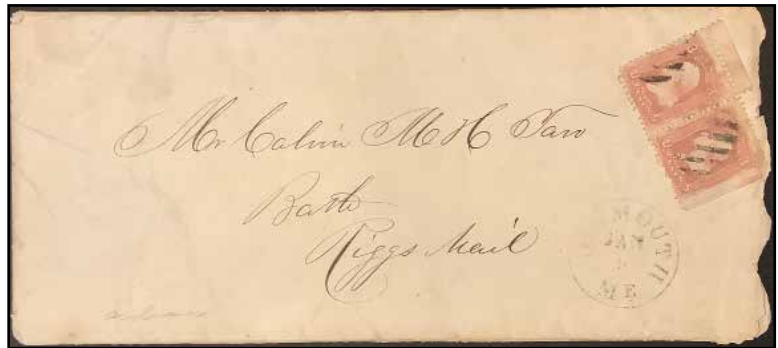 Mr Calvin M H
Bath
Riggs Mail
MOUTH
JAN
ME